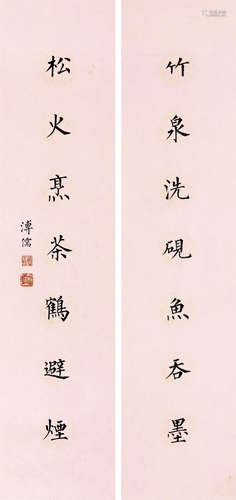 竹泉洗硯魚吞墨
松火烹茶鶴避煙
溥儒